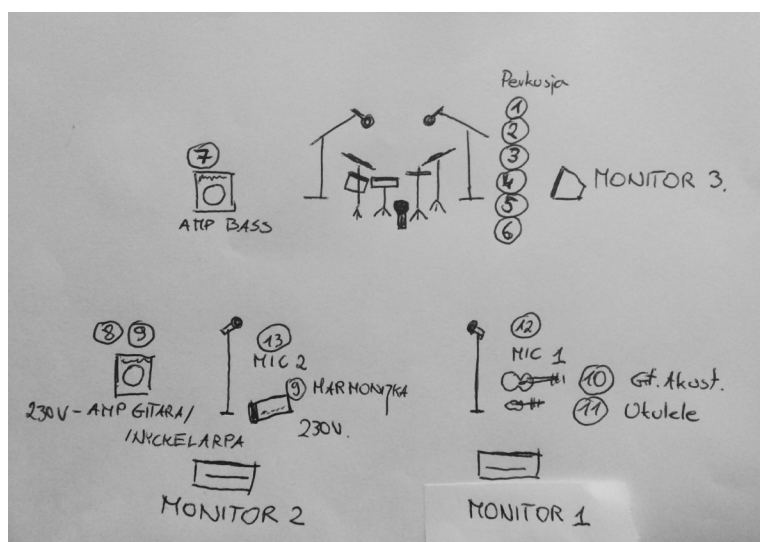 Perkusja
1
2
3
4
5
6
MONITOR 3.
7
AMP BASS
8 9
230V - AMP GITARA/
/NYCKELARPA
13
MIC 2
9 HARMONIJKA
230V.
MONITOR 2
12
MIC 1
10 Git. Akust.
11 Ukulele
MONITOR 1